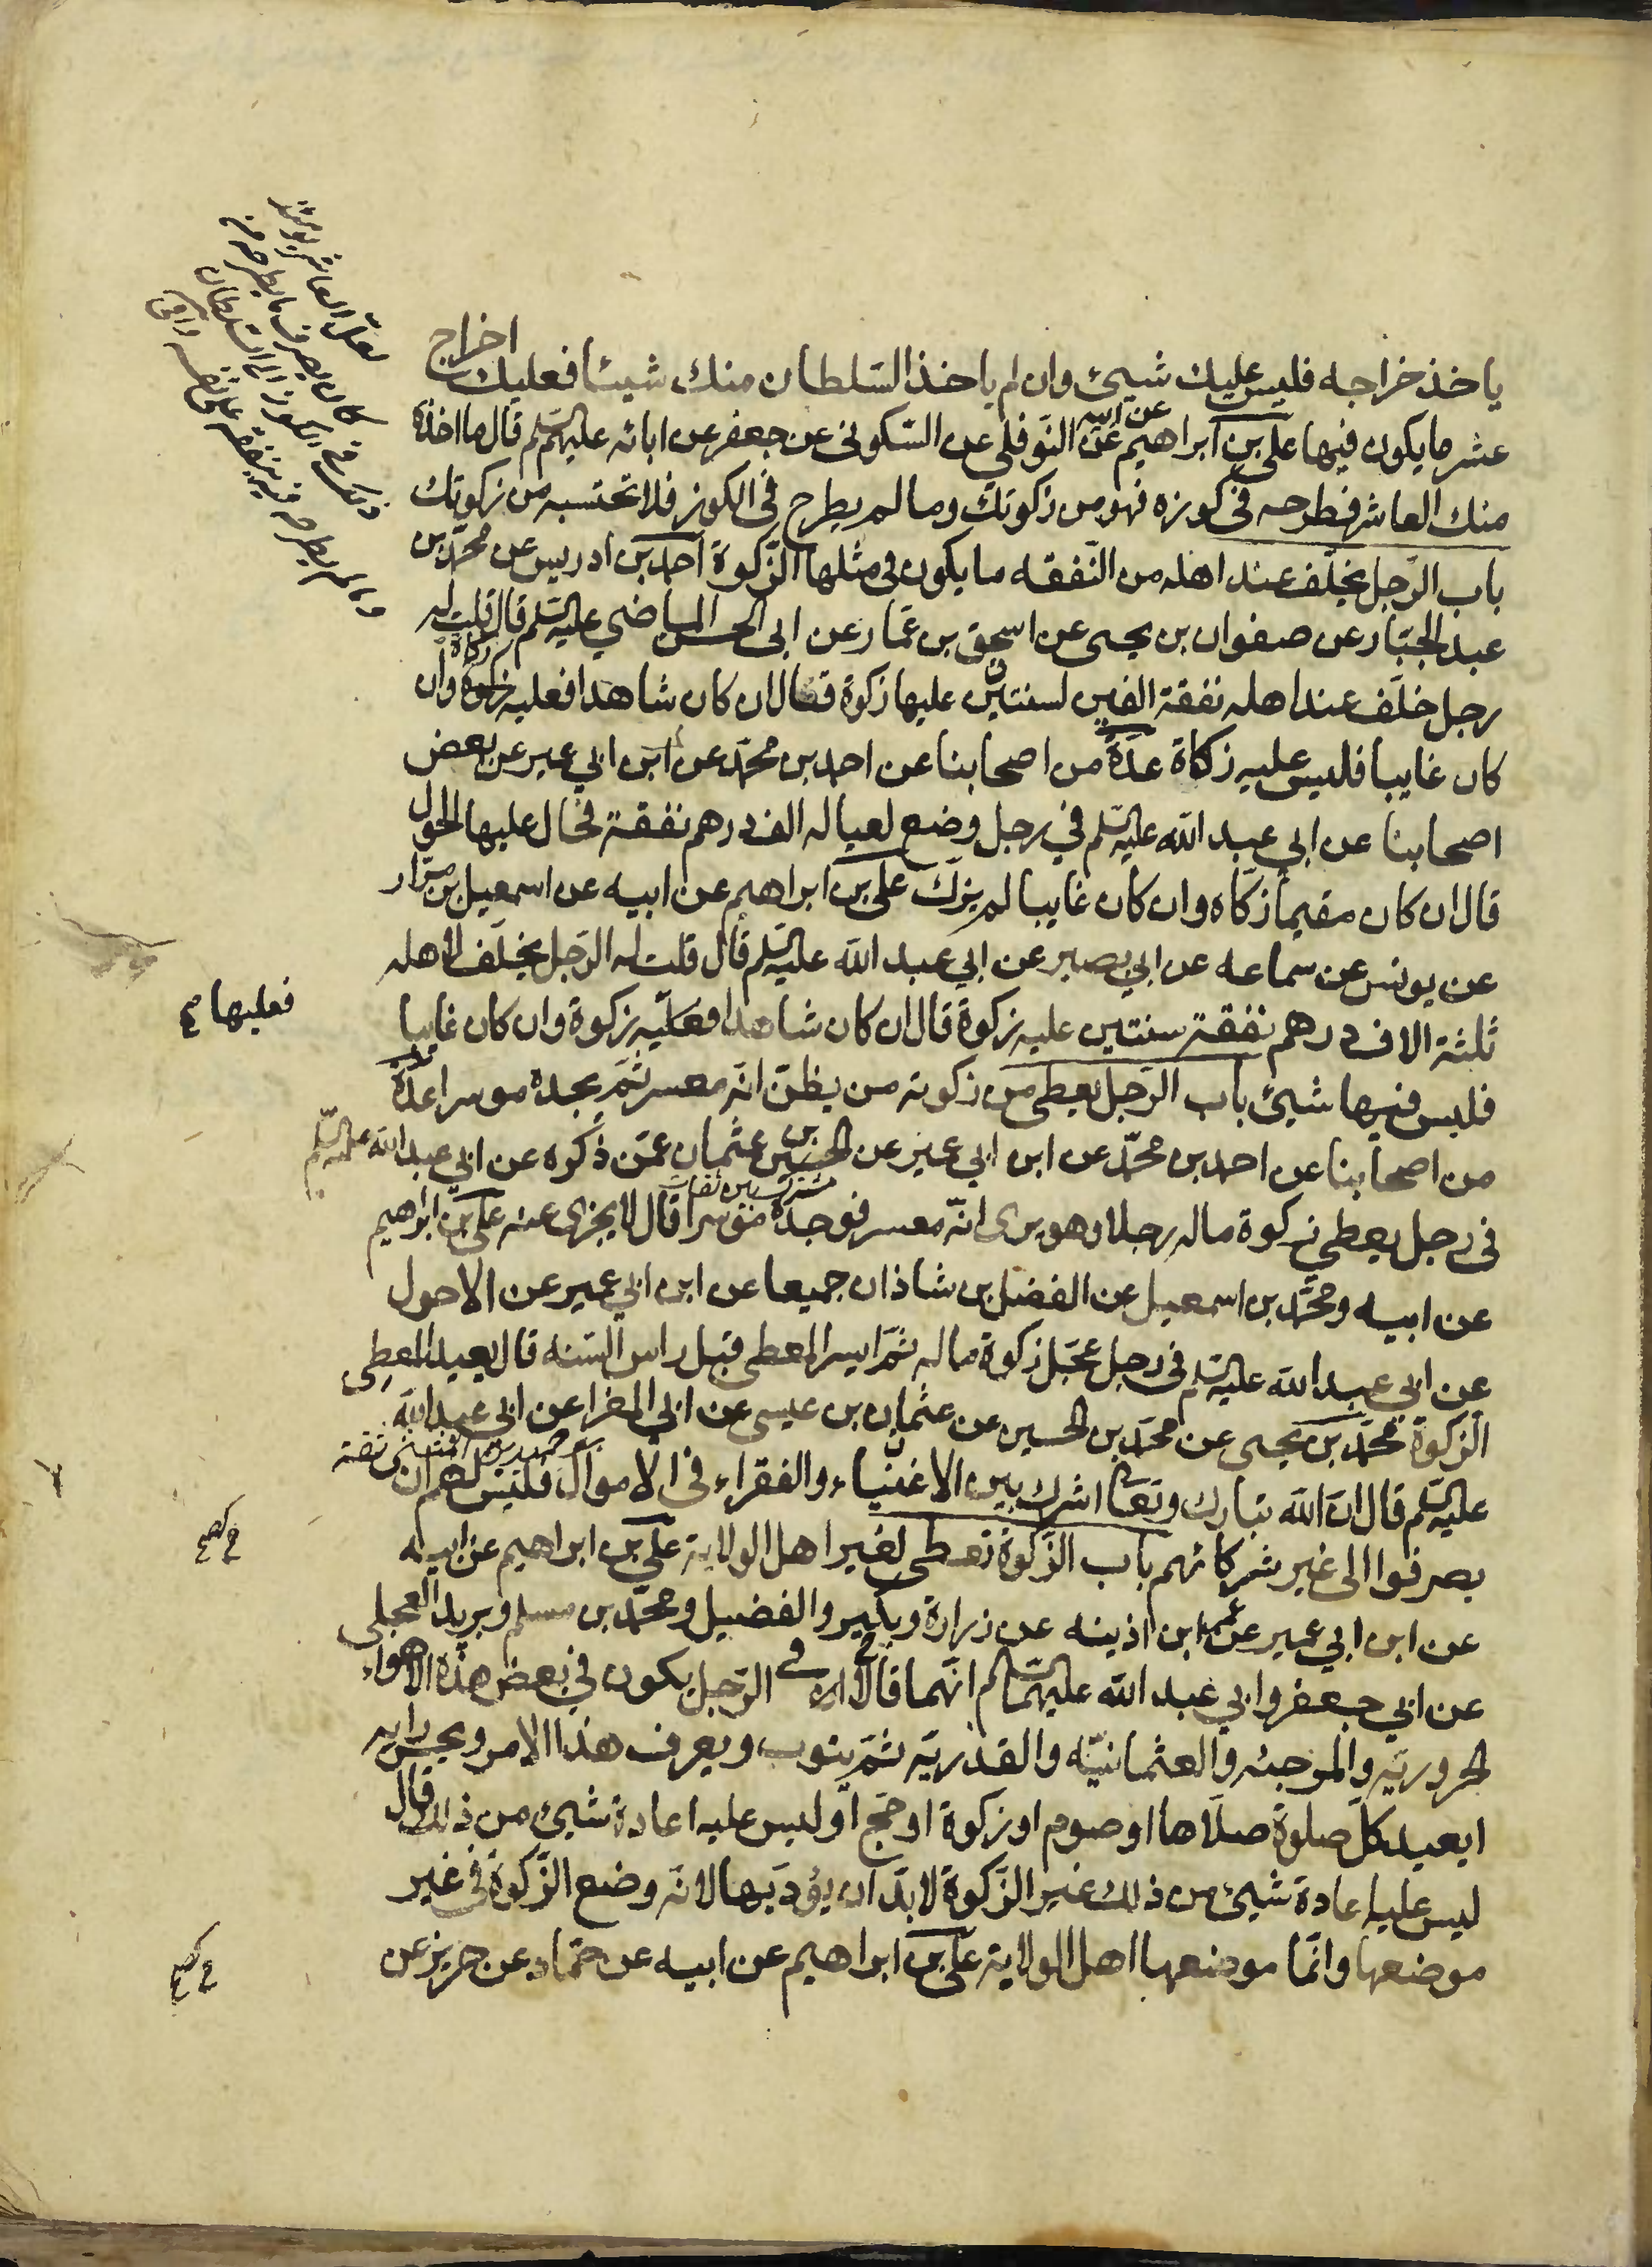 ياخذ خراجه فليس عليك شيئ وان لم ياخذ السّلطان منك شيئا فعليك اخراج
عشر ما يكون فيها على بن ابراهيم عن ابيه عن النوفلي عن السّكونى عن جعفر عن ابائه عليهم السّلم قال ما اخذه
منك العاشر فطرحه فى كوزه فهو من زكوتك وما لم يطرح فى الكوز فلا تحتسبه من زكوتك
باب الرّجل يخلّف عند اهله من النّفقه ما يكون فى مثلها الزّكوة احمد بن ادريس عن محمّد بن
عبد الجبّار عن صفوان بن يحيى عن اسحق بن عمّار عن ابى الحسن الماضي عليه السّلم قال قلت له
رجل خلّف عند اهله نفقة الفين لسنتين عليها زكوة قال ان كان شاهدا فعليه زكاة وان
كان غايبا فليس عليه زكاة عدّة من اصحابنا عن احمد بن محمّد عن ابن ابي عمير عن بعض
اصحابنا عن ابي عبد الله عليه السّلم في رجل وضع لعياله الف درهم نفقة فحال عليها الحول
قال ان كان مقيما زكّاه وان كان غايبا لم يزكّ على بن ابراهيم عن ابيه عن اسمعيل بن مرّار
عن يونس عن سماعه عن ابي بصير عن ابي عبد الله عليه السّلم قال قلت له الرّجل يخلّف لاهله
ثلثة الاف درهم نفقة سنتين عليه زكوة قال ان كان شاهدا فعليه زكوة وان كان غايبا
فعليها
فليس فيها شيئ باب الرّجل يعطى من زكوته من يظنّ انّه معسر ثمّ يجده موسرا عدّة
من اصحابنا عن احمد بن محمّد عن ابن ابي عمير عن الحسين بن عثمان عمّن ذكره عن ابي عبد الله عليه السّلم
فى رجل يعطي زكوة ماله رجلا وهو يرى انّه معسر فوجده موسرا قال لا يجزى عنه على بن ابراهيم
عن ابيه ومحمّد بن اسمعيل عن الفضل بن شاذان جميعا عن ابن ابي عمير عن الاحول
عن ابي عبد الله عليه السّلم فى رجل عجّل زكوة ماله ثمّ ايسر المعطى قبل راس السّنه قال يعيد المعطِى
الزكوة محمّد بن يحيى عن محمّد بن الحسين عن عثمان بن عيسى عن ابي المغرا عن ابي عبد الله
عليه السّلم قال انّ الله تبارك وتعا اشرك بين الاغنياء والفقراء فى الاموال فليس لهم ان
يصرفوا الى غير شركائهم باب الزّكوة تعطى لغير اهل الولاية على بن ابراهيم عن ابيه
عن ابن ابي عمير عن عمر ابن اذينه عن زرارة وبكير والفضيل ومحمّد بن مسلم وبريد العجلى
عن ابي جعفر وابي عبد الله عليهما السّلم انّهما قالا فى الرّجل يكون في بعض هذه الاهواء
الحروريّه والمرجئه والعثمانيّه والقدريّة ثمّ يتوب ويعرف هذا الامر ويحسن رايه
ايعيد كلّ صلوة صلّاها او صوم او زكوة او حجّ او ليس عليه اعادة شيئ من ذلك قال
ليس عليه اعادة شيئ من ذلك غير الزّكوة لا بدّ ان يؤدّيها لانّه وضع الزّكوة فى غير
موضعها وانّما موضعها اهل الولاية على بن ابراهيم عن ابيه عن حمّاد عن حريز عن